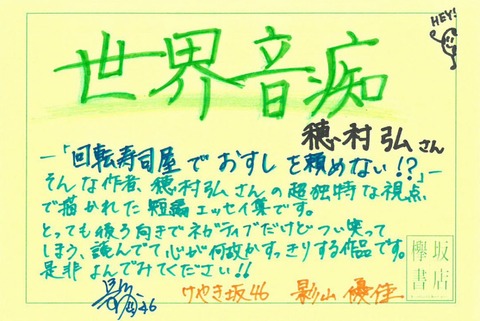 HEY!
世界音痴
穂村弘さん
―「回転寿司屋でおすしを頼めない!?」―
そんな作者、穂村弘さんの超独特な視点
で描かれた短編エッセイ集です。
とっても後ろ向きでネガティブだけどつい笑って
しまう、読んでて心が何故かすっきりする作品です。
是非よんでみてください!!
けやき坂46 影山優佳
欅坂
書店